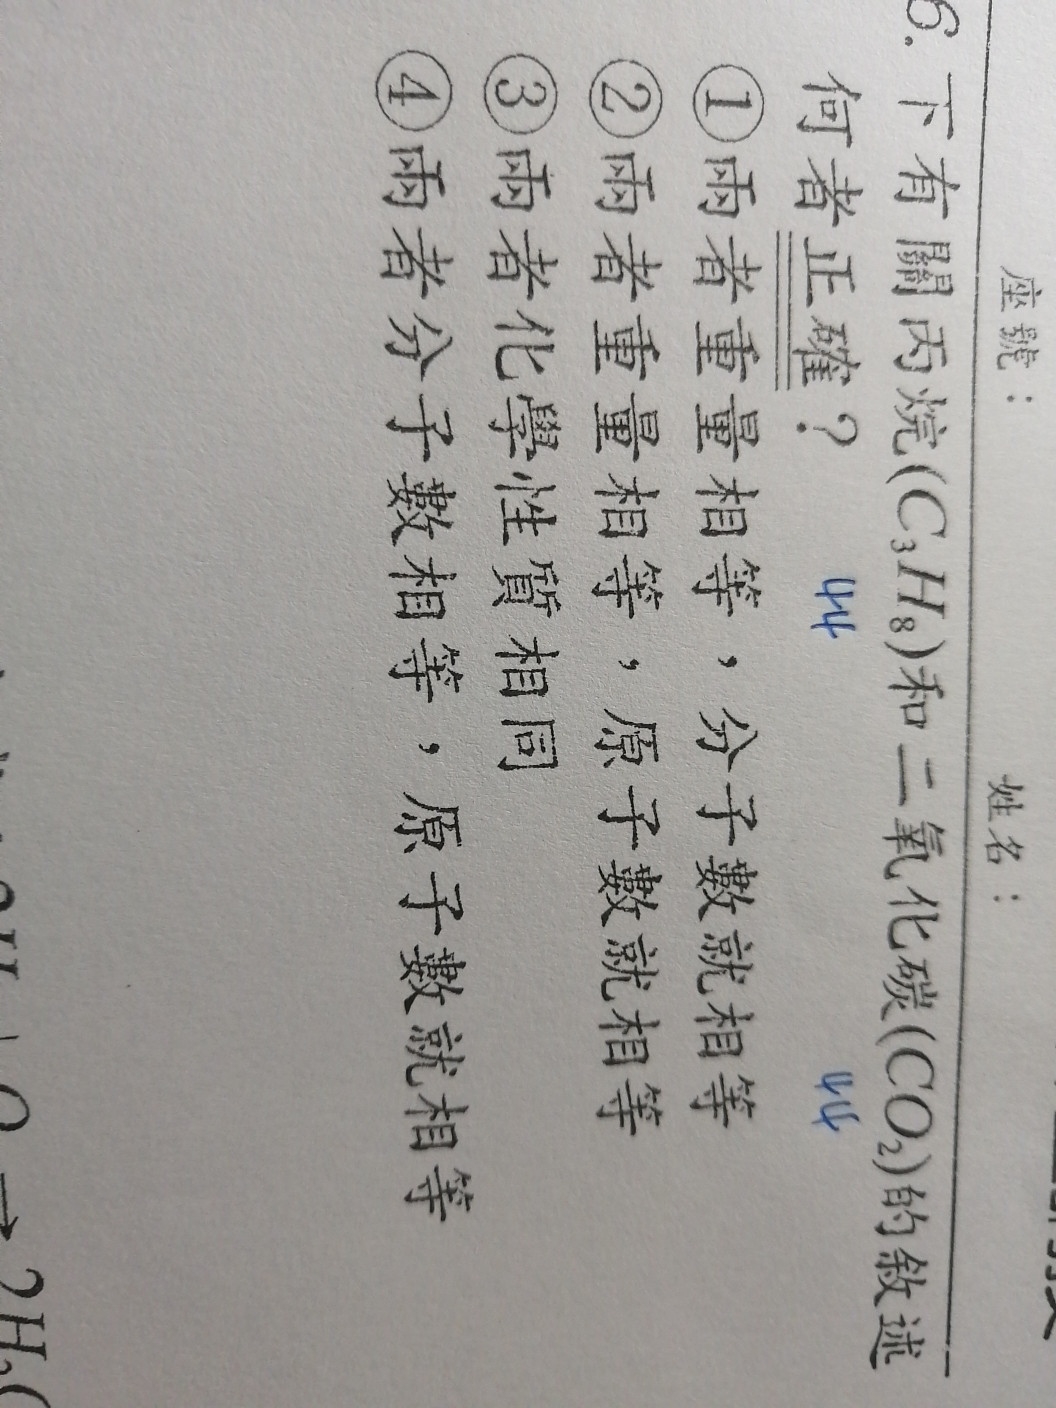 座號： 姓名：
6. 下有關丙烷(C₃H₈)和二氧化碳(CO₂)的敘述
何者正確？
44 44
①兩者重量相等，分子數就相等
②兩者重量相等，原子數就相等
③兩者化學性質相同
④兩者分子數相等，原子數就相等
→ 2H₂(